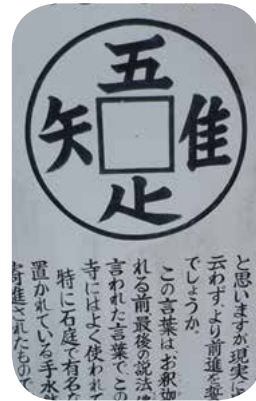 五
隹
龰
矢
と思いますが現実に
云わず、より前進を誓
でしょうか。
この言葉は、お釈迦
れる前最後の説法
言われた言葉で、この
寺にはよく使われて
特に石庭で有名な
置かれている手水
寄進されたもので